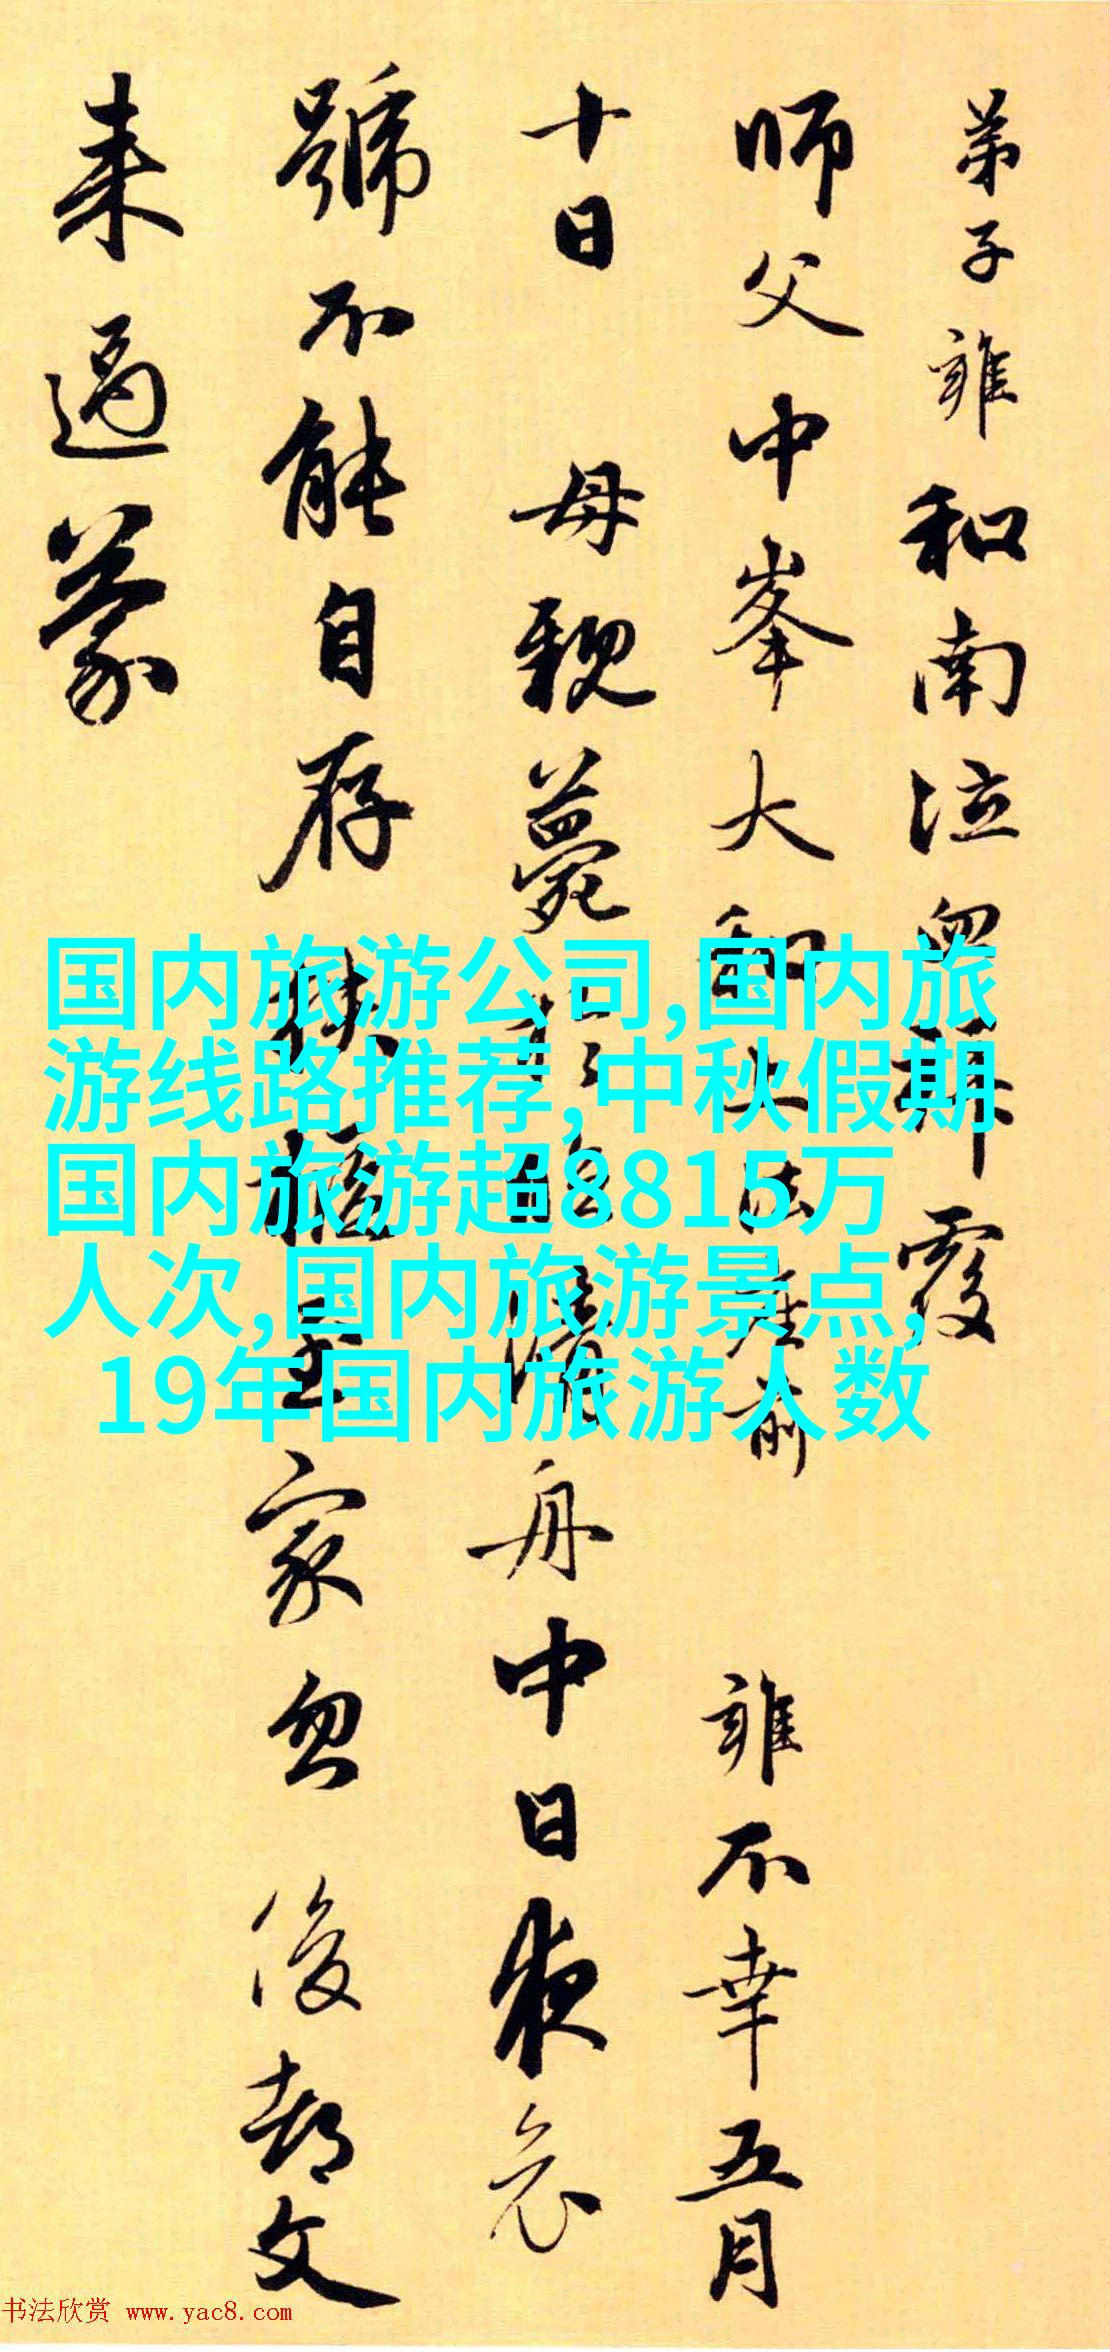 弟子雍和南泣血拜覆
師父中峯大和上法座前 雍不幸五月
十日 母親薨
舟中日夜哀
號不能自存扶
至家忽後都文
来過蒙
国内旅游公司,国内旅
游线路推荐,中秋假期
国内旅游超8815万
人次,国内旅游景点,
19年国内旅游人数
书法欣赏 www.yac8.com